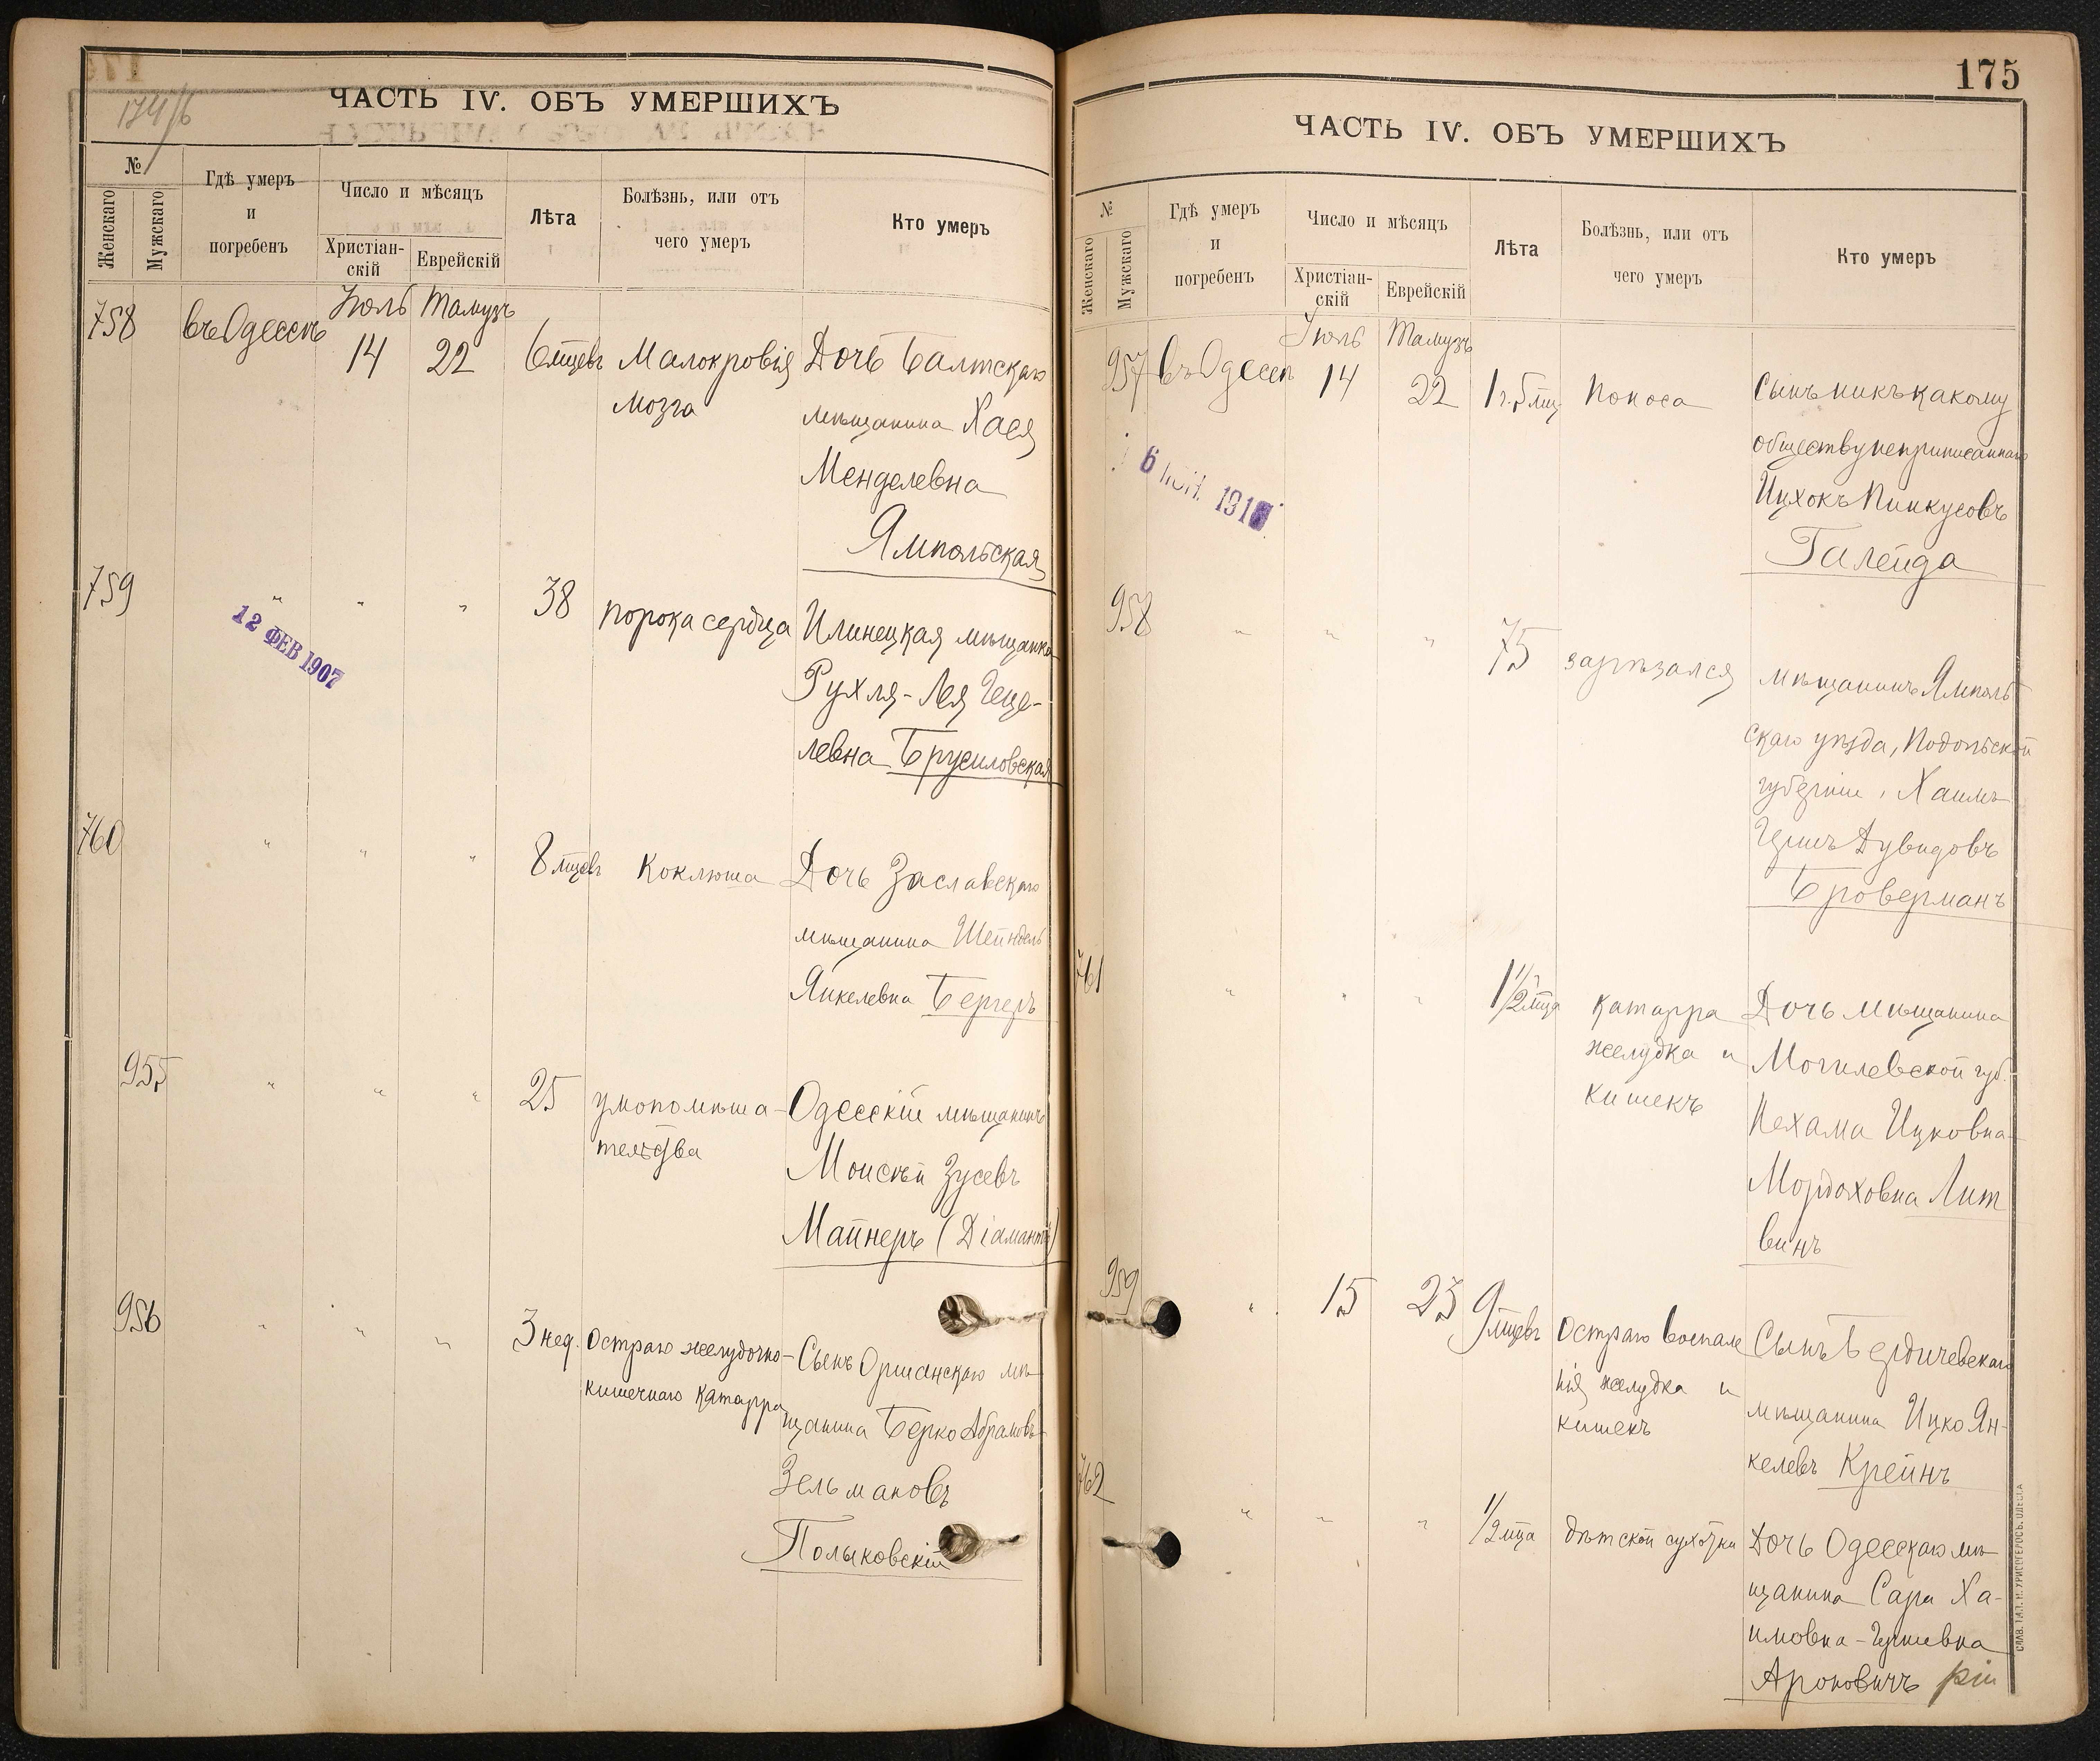 174/б
ЧАСТЬ IV. ОБЪ УМЕРШИХЪ
№
Женскаго
Мужскаго
Гдѣ умеръ
и
погребенъ
Число и мѣсяцъ
Христіан-
скій
Еврейскій
Лѣта
Болѣзнь, или отъ
чего умеръ
Кто умеръ
758
въ Одессѣ
Іюль
Тамузъ
14
22
6 мцевъ
Малокровія
мозга
Дочь Балтскаго
мѣщанина Хася
Менделевна
Ямпольская
759
" " "
38
порока сердца
Илинецкая мѣщанка
Рухля-Лея Геце-
левна Брусиловская
12 ФЕВ 1907
760
" " "
8 мцевъ
Коклюша
Дочь Заславскаго
мѣщанина Шейндель
Янкелевна Бергеръ
955
" " "
25
умопомѣша-
тельства
Одесскій мѣщанинъ
Моисѣй Зусевъ
Майнеръ (Діамантъ)
956
" " "
3 нед.
Остраго желудочно-
кишечнаго катарра
Сынъ Оршанскаго мѣ-
щанина Берко Абрамовъ-
Зельмановъ
Полыковскій
175
ЧАСТЬ IV. ОБЪ УМЕРШИХЪ
№
Женскаго
Мужскаго
Гдѣ умеръ
и
погребенъ
Число и мѣсяцъ
Христіан-
скій
Еврейскій
Лѣта
Болѣзнь, или отъ
чего умеръ
Кто умеръ
957
въ Одессѣ
Іюль
Тамузъ
14
22
1 г. 5 мц.
поноса
Сынъ никъ какому
обществу неприписаннаго
Ицхокъ Пинкусовъ
Галейда
958
" " "
75
зарѣзался
мѣщанинъ Ямполь
скаго уѣзда, Подольской
губерніи, Хаимъ
Гершъ Дувидовъ
Броверманъ
761
" " "
1 1/2 мца
катарра
желудка и
кишекъ
Дочь мѣщанина
Могилевской губ.
Нехама Ицковна-
Мордоховна Лит
винъ
959
"
15
23
9 мцевъ
Остраго воспале
нія желудка и
кишекъ
Сынъ Бердичевскаго
мѣщанина Ицко Ян-
келевъ Крейнъ
762
" " "
1/2 мца
дѣтской сухотки
Дочь Одесскаго мѣ-
щанина Сара Ха-
имовна-Гершевна
Ароновичъ
СЛАВ. ТИП. Н. ХРИСОГЕЛОСЪ. ОДЕССА